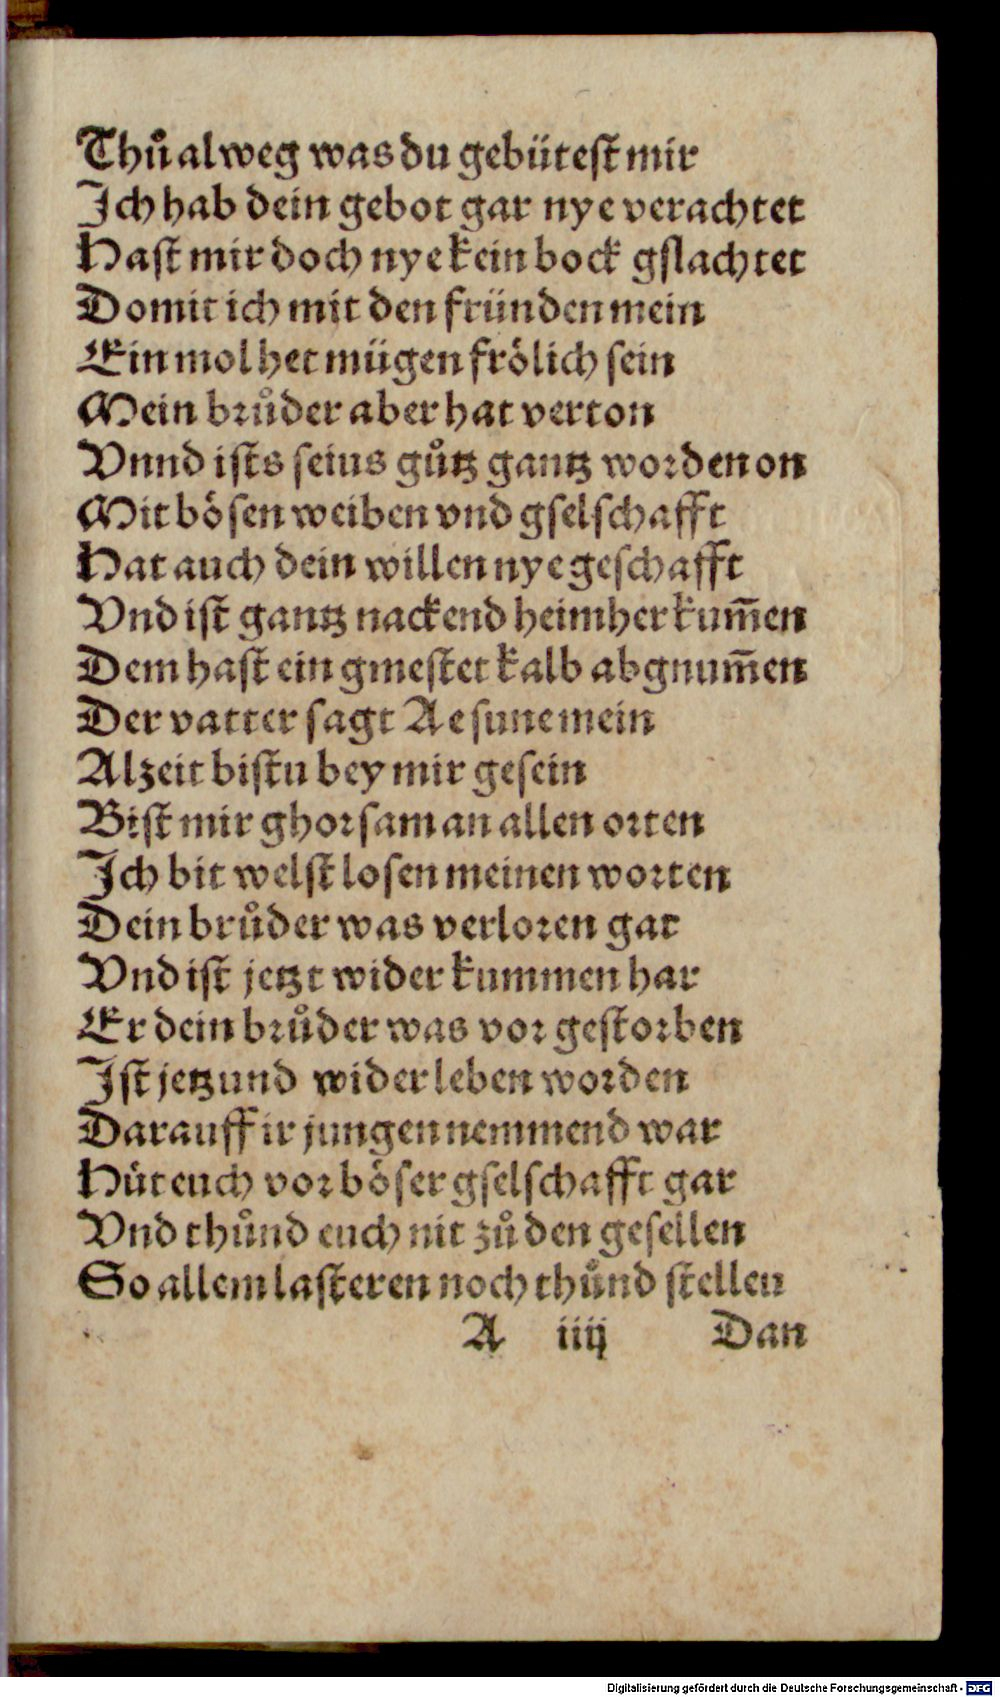 Thuͦ alweg was du gebütest mir
Ich hab dein gebot gar nye verachtet
Hast mir doch nye kein bock gslachtet
Domit ich mit den fründen mein
Ein mol het mügen frölich sein
Mein bruͦder aber hat verton
Vnnd ists seius guͦtz gantz worden on
Mit bösen weiben vnd gselschafft
Hat auch dein willen nye geschafft
Vnd ist gantz nackend heimher kum̄en
Dem hast ein gmestet kalb abgnum̄en
Der vatter sagt Ae sune mein
Alzeit bistu bey mir gesein
Bist mir ghorsam an allen orten
Ich bit welst losen meinen worten
Dein bruͦder was verloren gar
Vnd ist jetzt wider kummen har
Er dein bruͦder was vor gestorben
Ist jetzund wider leben worden
Darauff ir jungen nemmend war
Hüt euch vor böser gselschafft gar
Vnd thuͦnd euch nit zuͦ den gesellen
So allem lasteren noch thuͦnd stellen
A iiij Dan
Digitalisierung gefördert durch die Deutsche Forschungsgemeinschaft - DFG